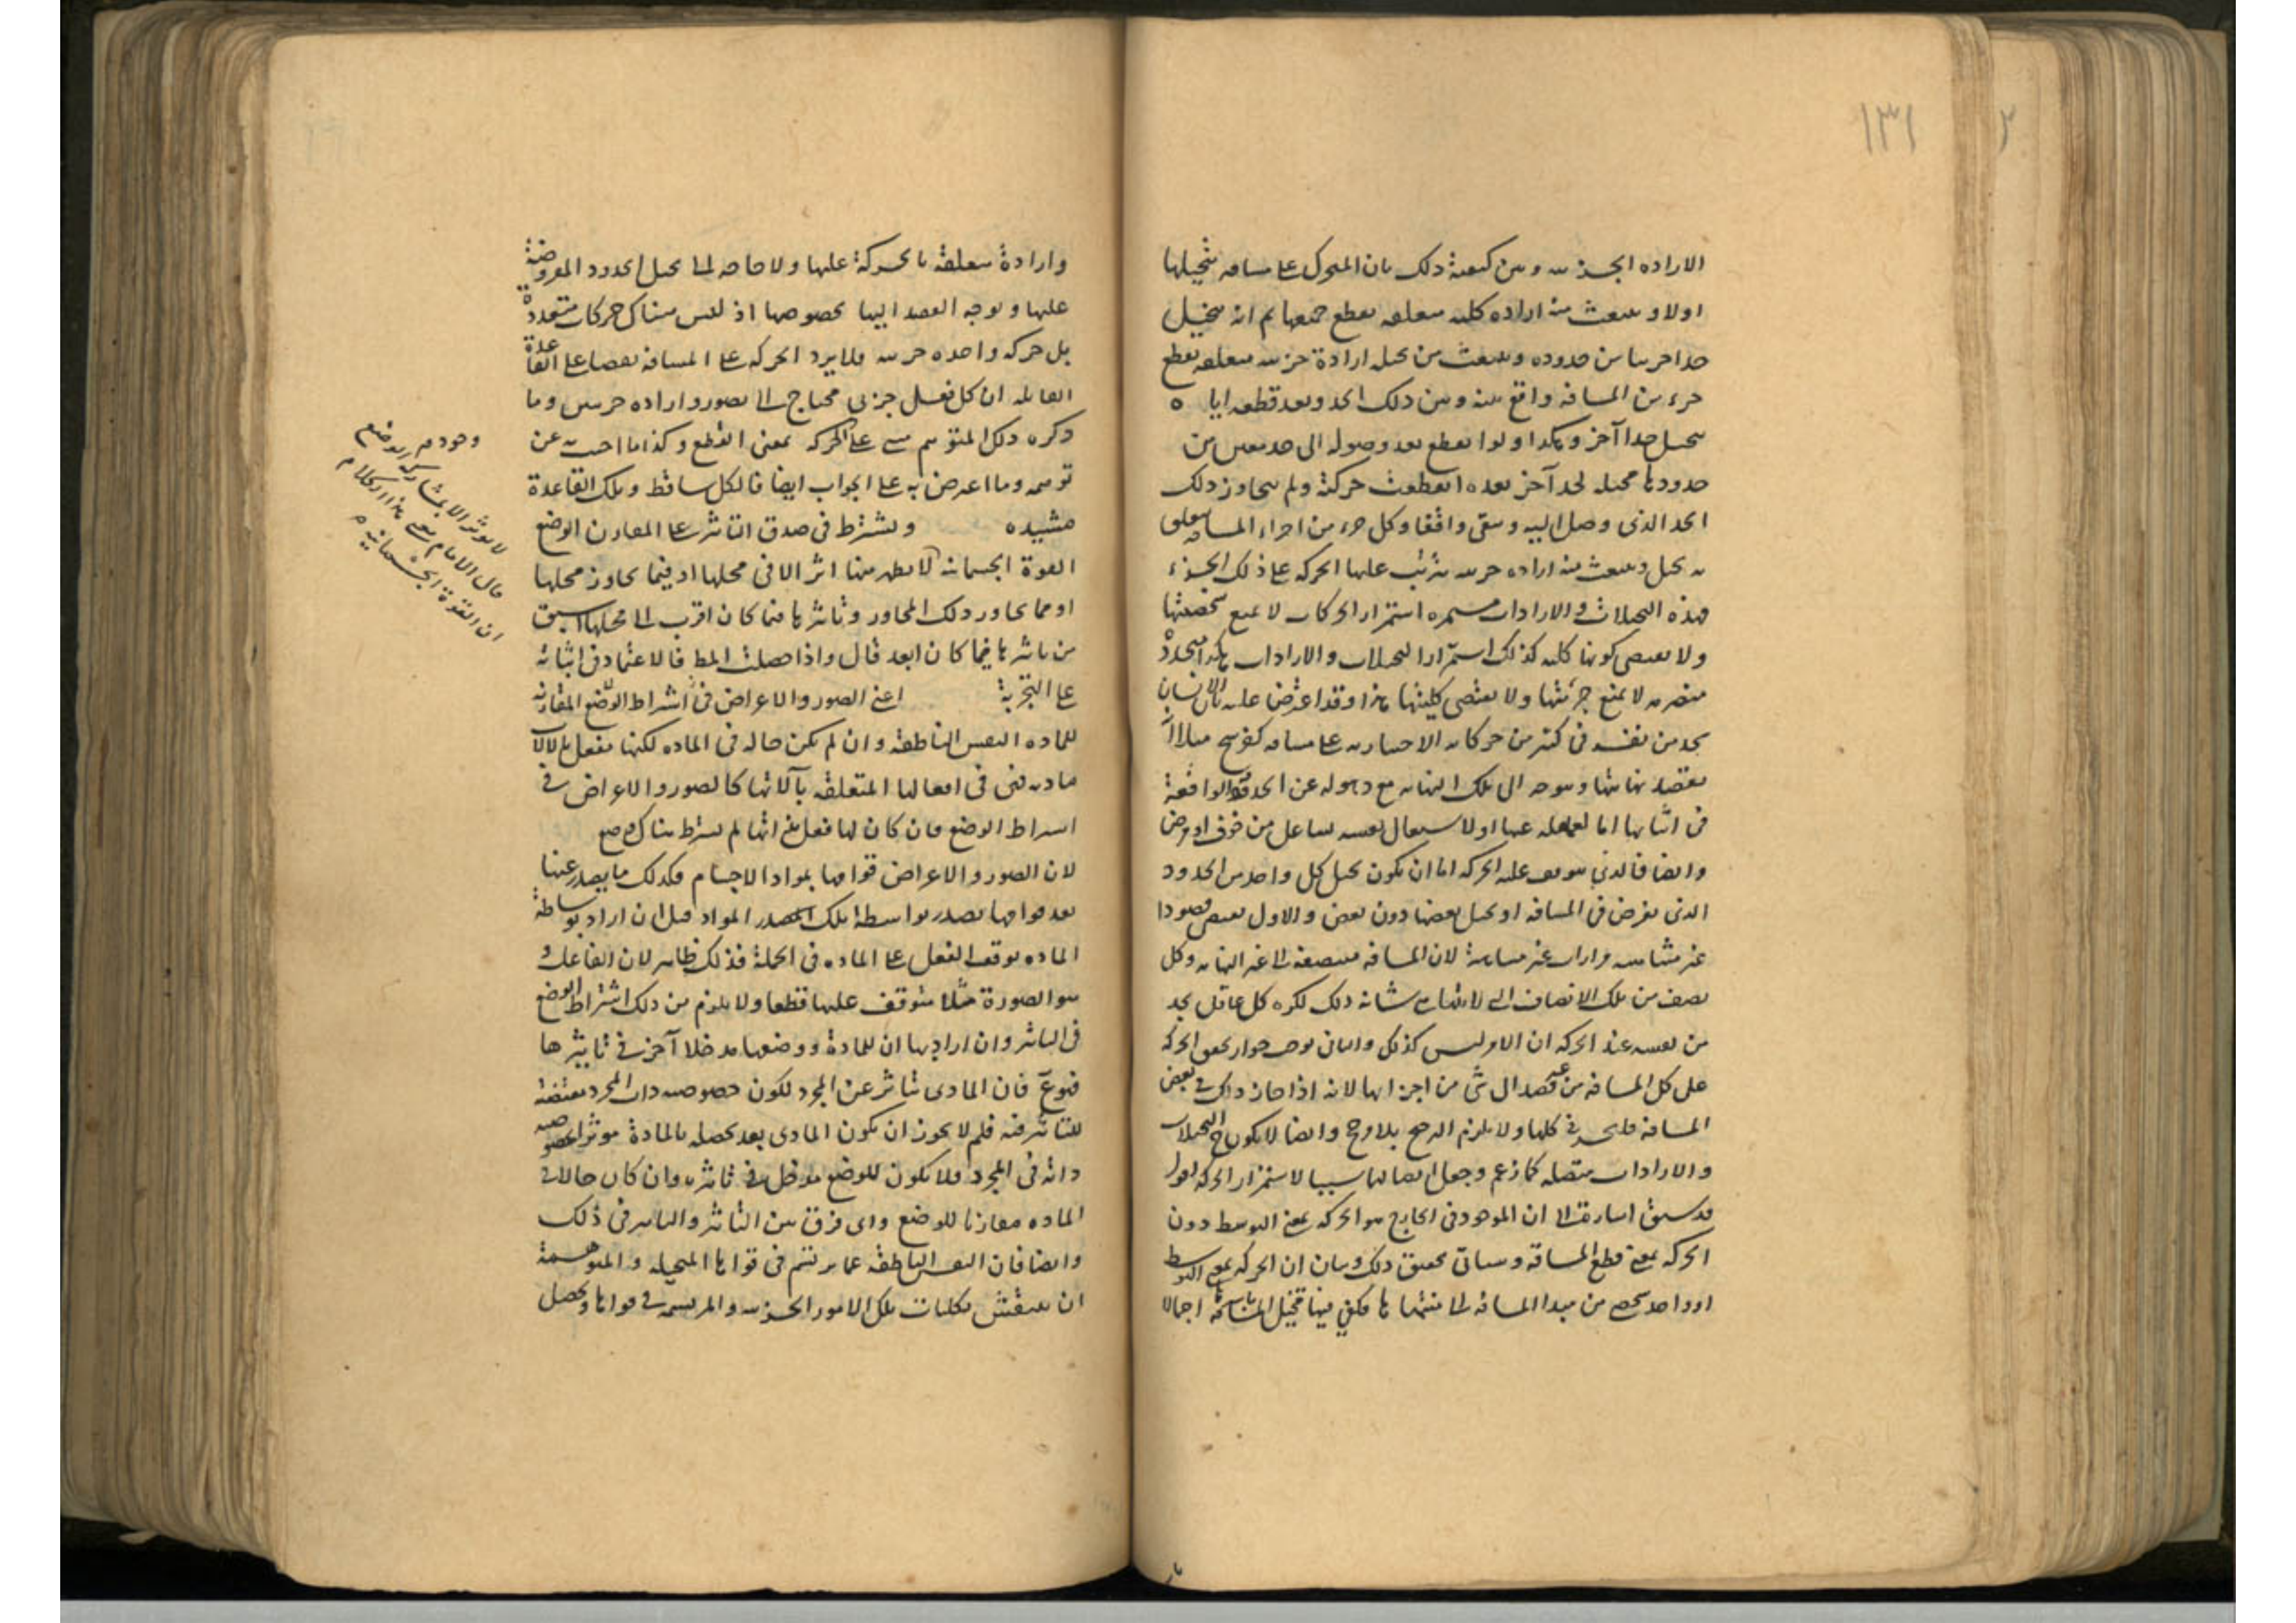 ١٣١
الاراده الجزئيه وبين كيفية ذلك بان المتحرك على مسافه يتخيلها
اولا وينبعث منه اراده كليه متعلقه بقطع جميعها ثم انه يتخيل
حدا جزئيا من حدوده وينبعث من تخيله ارادة جزئيه متعلقه بقطع
جزء من المسافه واقع بينه وبين ذلك الحد وبعد قطعه اياه
يتخيل حدا آخر وهكذا ولو انقطع بعد وصوله الى حد معين من
حدودها تخيله لحد آخر بعده انقطعت حركته ولم يتجاوز ذلك
الحد الذى وصل اليه وبقى واقفا وكل جزء من اجزاء المسافه يتعلق
به تخيل وينبعث منه اراده جزئيه يترتب عليها الحركه على ذلك الجزء
فهذه التخيلات والارادات مستمره استمرار الحركات لا تمنع شخصيتها
ولا يقتضى كونها كليه كذلك استمرار التخيلات والارادات هكذا متجددة
متصرمه لا يمنع جزئيتها ولا يقتضى كليتها هذا وقد اعترض عليه بان الانسان
يجد من نفسه فى كثير من حركاته الاختياريه على مسافه كفرسخ مثلا انه
يقصد نهايتها ويتوجه الى تلك النهايه مع ذهوله عن الحدود الواقعة
فى اثنائها اما لغفلته عنها او لاشتغال نفسه بشاغل من خوف او مرض
وايضا فالذى يتوقف عليه الحركه اما ان يكون تخيل كل واحد من الحدود
الذى يفرض فى المسافه او تخيل بعضها دون بعض والاول يقتضى تصورات
غير متناهيه وارادات غير متناهية لان المسافه منتصفه الى غير النهايه وكل
نصف من تلك الانصاف الى لا يتناهى شانه ذلك لكن كل عاقل يجد
من نفسه عند الحركه ان الامر ليس كذلك والثانى يوجب جواز تحقق الحركه
على كل المسافه من غير قصد الى شئ من اجزائها لانه اذا جاز ذلك فى بعض
المسافه فليجز فى كلها ولا يلزم الترجيح بلا مرجح وايضا لا يكون ح التخيلات
والارادات متصله كما زعم وجعل اتصالها سببا لاستمرار الحركه نقول
قد سبق اشاره الى ان الموجود فى الخارج هو الحركه بمعنى التوسط دون
الحركه بمعنى قطع المسافة وسياتى تحقيق ذلك وبيان ان الحركه بمعنى التوسط
امر واحد شخصى من مبدا المسافه الى منتهاها فيكفى فيها تخيل المسافة اجمالا
وارادة متعلقة بالحركة عليها ولا حاجه الى تخيل الحدود المفروضة
عليها وتوجه القصد اليها بخصوصها اذ ليس هناك حركات متعددة
بل حركه واحده جزئيه فلا يرد الحركه على المسافه نقضا على القاعدة
القائله ان كل فعل جزئى محتاج الى تصور واراده جزئيين وما
ذكره ذلك المتوهم مبنى على الحركه بمعنى القطع وكذا ما اجيب به عن
توهمه وما اعترض به على الجواب ايضا فالكل ساقط وتلك القاعدة
مشيده ويشترط فى صدق التاثر على المقارن الوضع
القوة الجسمانيه لا يظهر منها اثر الا فى محلها او فيما يجاور محلها
او فيما يجاور ذلك المجاور وتاثيرها فيما كان اقرب الى محلها اسبق
من تاثيرها فيما كان ابعد قال واذا حصلت المط فالاعتماد فى اثباته
على التجربة اعنى الصور والاعراض فى اشتراط الوضع المقارنه
للماده النفس الناطقه وان لم يكن حاله فى الماده لكنها تفعل بالالات
ماديه فهى فى افعالها المتعلقه بآلاتها كالصور والاعراض فى
اشتراط الوضع فان كان لها فعل بغير آلتها لم يشترط هناك وضع
لان الصور والاعراض قوامها بمواد الاجسام فكذلك ما يصدر عنها
بعد قوامها يصدر بواسطة تلك المواد قيل ان اراد بوساطة
الماده توقف الفعل على الماده فى الجملة فذلك ظاهر لان الفاعل
هو الصورة مثلا متوقف عليها قطعا ولا يلزم من ذلك اشتراط الوضع
فى التاثير وان اراد بها ان للمادة ووضعها مدخلا آخر فى تاثيرها
فممنوع فان المادى يتاثر عن المجرد لكون خصوصيه ذات المجرد مقتضية
للتاثير فيه فلم لا يجوز ان يكون المادى بعد تحصله بالمادة مؤثرا بخصوصيه
ذاته فى المجرد فلا يكون للوضع مدخل فى تاثيره وان كان حالا فى
الماده مقارنا للوضع واى فرق بين التاثر والتاثير فى ذلك
وايضا فان النفس الناطقه عما يرتسم فى قواها المتخيله والمتوهمة
ان ينتقش بكليات تلك الامور الجزئيه والمرتسمه فى قواها ويحصل
وجودهم الوضع
لا يوثر الا بمشاركه
قال الامام معنى هذا الكلام
ان القوة الجسمانيه